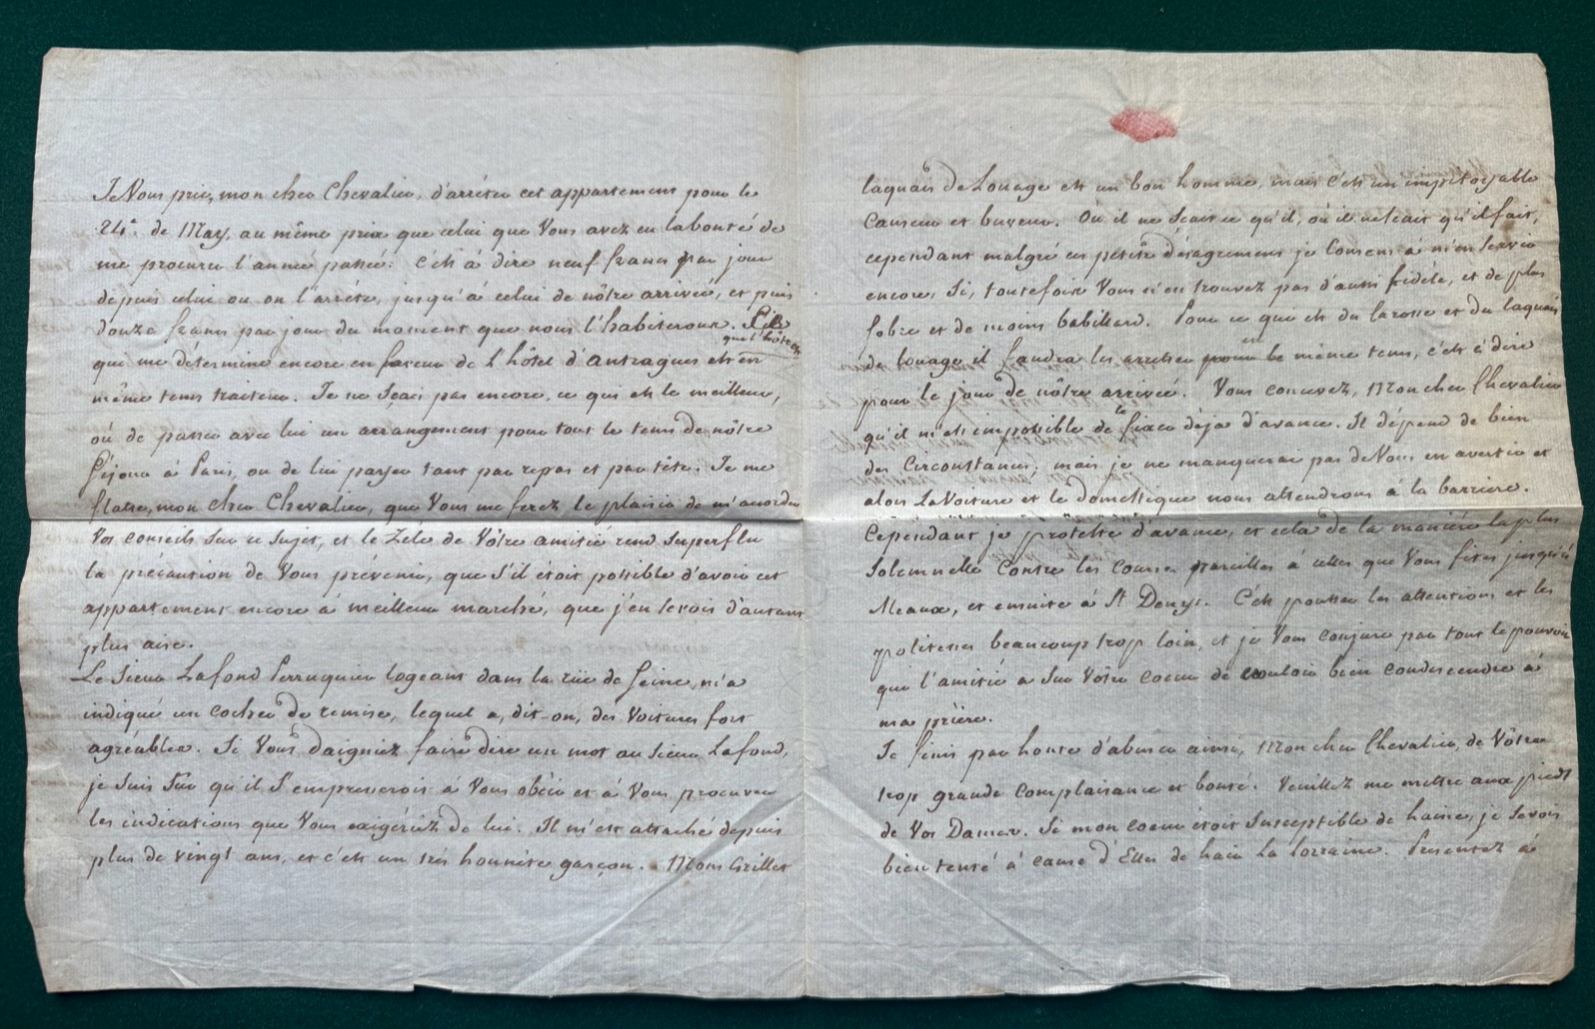 Je Vous prie, mon cher Chevalier, d'arrêter cet appartement pour le
24e. de May, au même prix que celui que Vous avez eu la bonté de
me procurer l'anneé passeé: c'est à dire neuf francs par jour
depuis celui ou on l'arrête, jusqu'à celui de nôtre arriveé, et puis
douze francs par jour du moment que nous l'habiterons. Ce
qui me détermine encore en faveur de l'hôtel d'Antragues est
que l'hôte
en
même tems traiteur. Je ne sçais pas encore, ce qui est le meilleur,
où de passer avec lui un arrangement pour tout le tems de nôtre
séjour à Paris, ou de lui payer tant par repas et par tête. Je me
flatte, mon cher Chevalier, que Vous me ferez le plaisir de m'accorder
Vos conseils sur ce sujet, et le Zéle de Vôtre amitié rend superflu
la précaution de Vous prévenir, que s'il étoit possible d'avoir cet
appartement encore à meilleur marché, que j'en serois d'autant
plus aise.
Le Sieur Lafond Perruquier logeant dans la rüe de Seine, m'a
indiqué un cocher de remise, lequel a, dit-on, des Voitures fort
agréables. Si Vous daigniez faire dire un mot au Sieur Lafond,
je suis sûr qu'il s'empresseroit à Vous obéir et à Vous procurer
les indications que Vous exigériez de lui. Il m'est attaché depuis
plus de vingt ans, et c'est un trés honnête garçon. Mons Grillet
laquais de Louage est un bon homme, mais c'est un impitoyable
causeur et buveur. Où il ne sçait ce qu'il, où il ne sçait qu'il fait,
cependant malgré ces petits désagremens je consens à m'en servir
encore, si, toutefois Vous n'en trouvez pas d'aussi fidéle, et de plus
sobre et de moins babillard. Pour ce que est du carosse et du laquais
de louage il faudra les arrêter pour le même tems, c'est à dire
pour le jour de nôtre arriveé. Vous concevez, Mon cher Chevalier
qu'il m'est impossible de le fixer déja d'avance. Il dépend de bien
des Circonstances; mais je ne manquerai pas de Vous en avertir et
alors La Voiture et le domestique nous attendrons à la barriere.
Cependant je proteste d'avance, et cela de la maniére la plus
Solemnelle contre les courses pareilles à celles que Vous fites jusqu'à
Meaux, et ensuite à St Denys. C'est pousser les attentions et les
politesses beaucoup trop loin, et je Vous conjure par tout le pouvoir
que l'amitié a sur Vôtre coeur de vouloir bien condescendre à
ma priére.
Je finis par honte d'abuser ainsi, Mon cher Chevalier, de Vôtre
trop grande Complaisance et bonté. Veuillez me mettre aux pieds
de Vos Dames. Si mon coeur étoit susceptible de haine, je serois
bien tenté à cause d'Elles de haïr La Lorraine. Presentez à